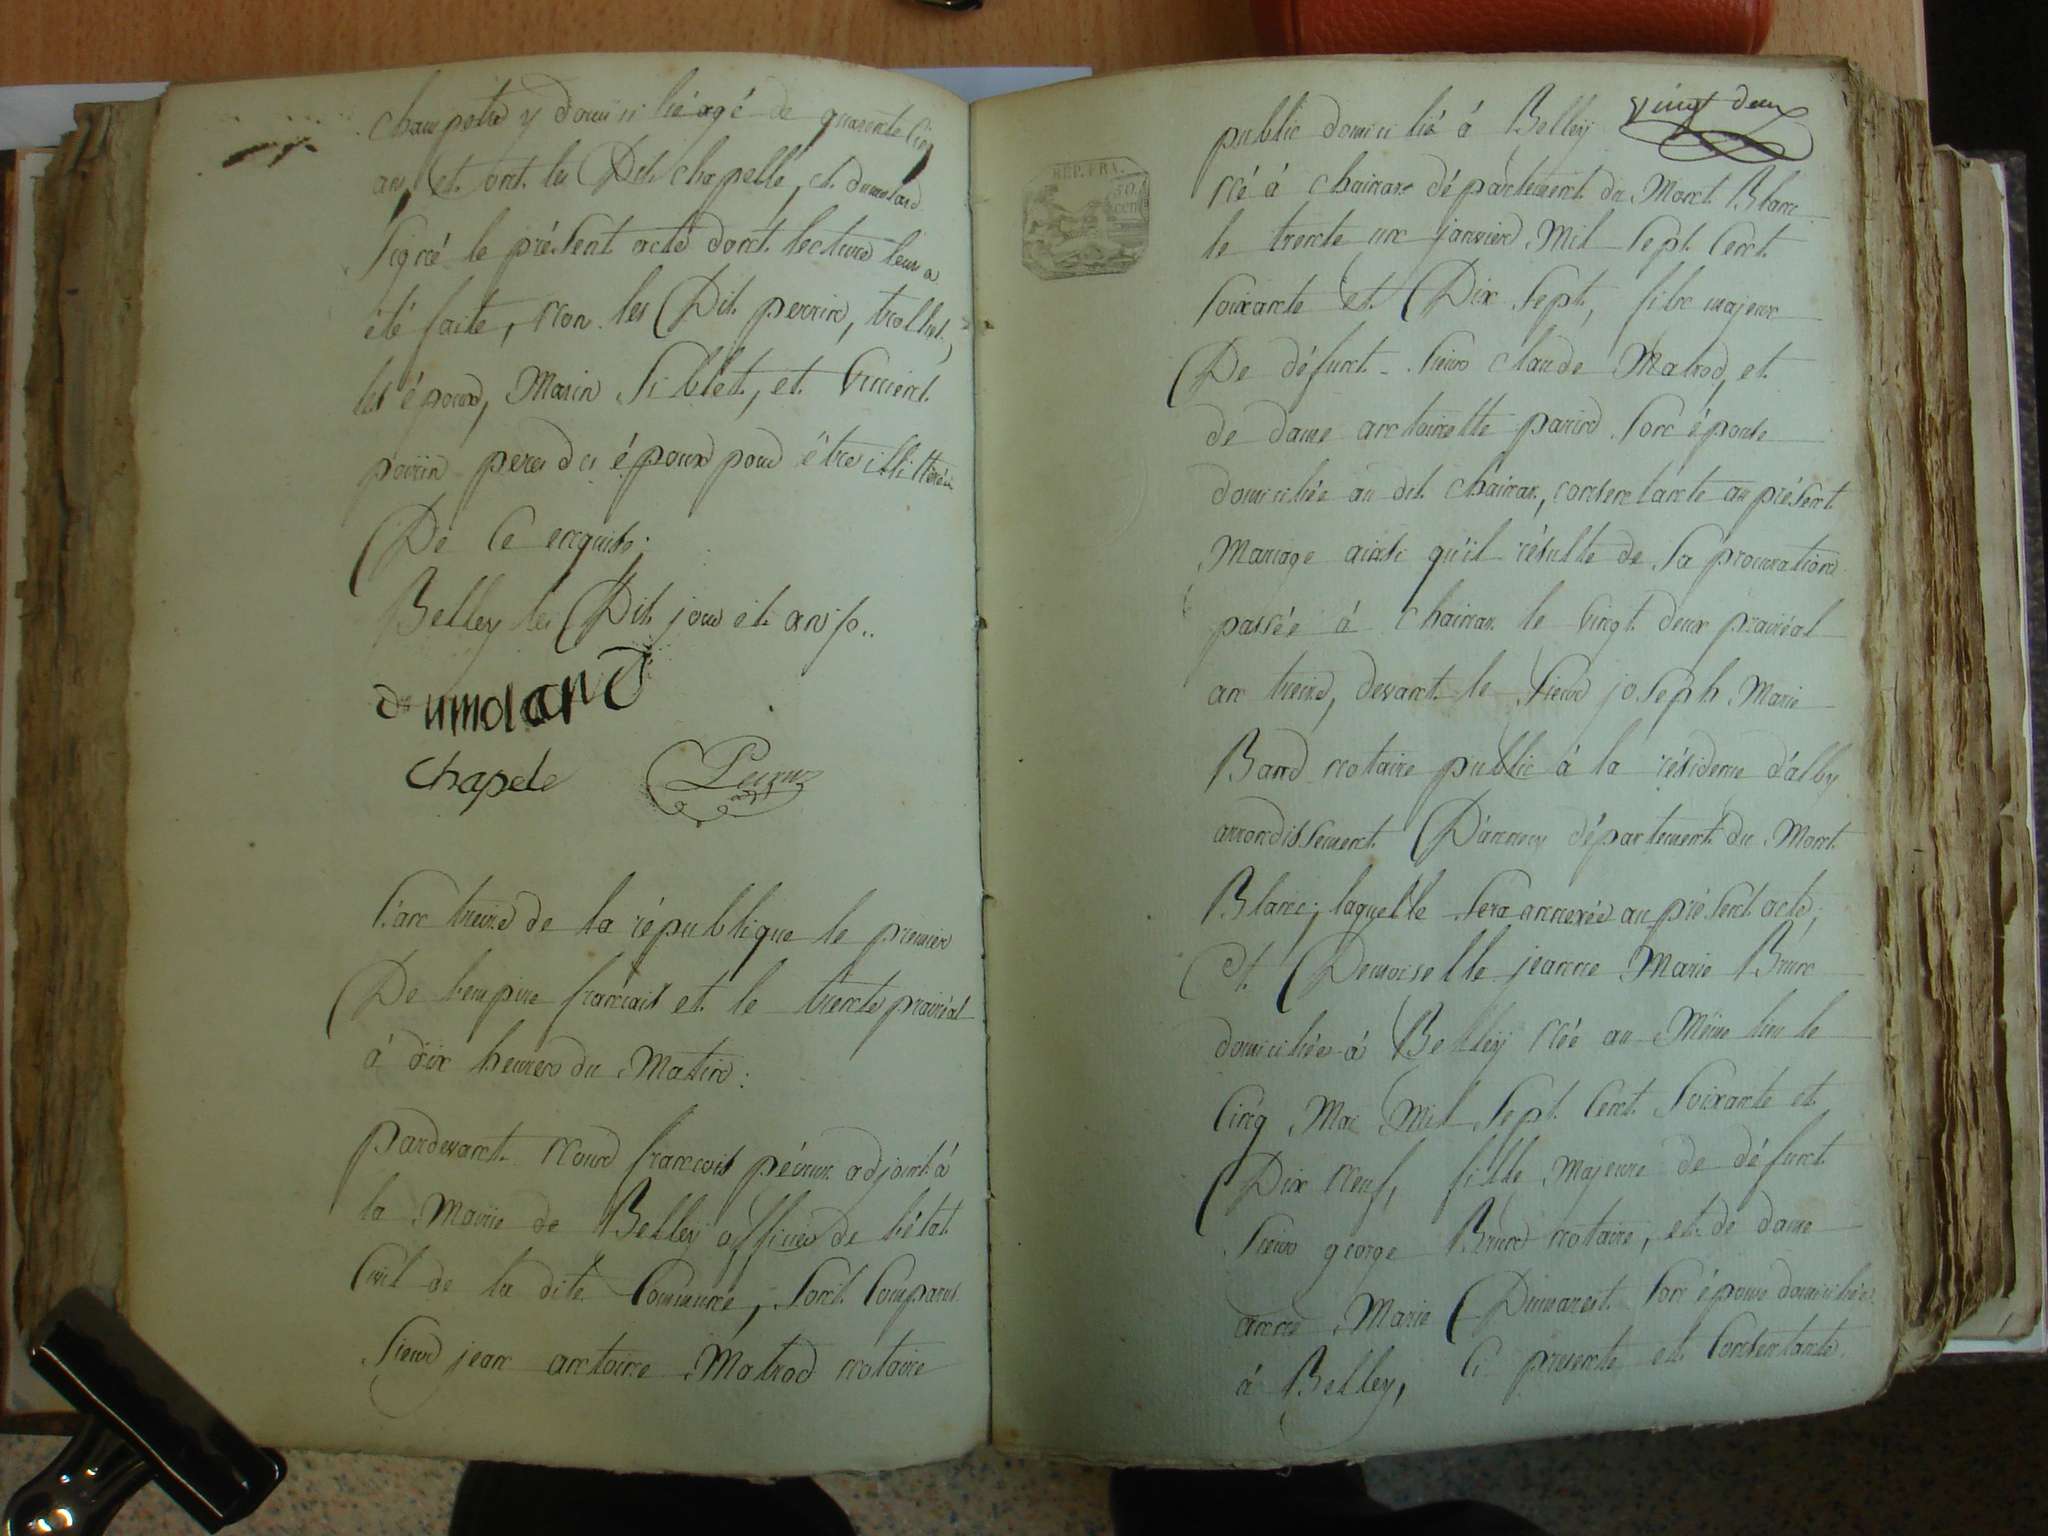 champetre y domicilié agé de quarante cinq
ans et ont les Dits chapelle, et dumoland
signé le présent acte dont lecture leur a
été faite, non les Dits perrin, trolliet,
les époux, Marin Siblet, et Vincent
perrin peres des époux pour être illitérés
De ce enquis.
Belley les Dits jour et an /..
dumolard
Chapele
Pecruz
L'an treize de la république le premier
De l'empire francais et le trente prairéal
à dix heures du Matin:
Pardevant nous francois pécruz adjoint à
la Mairie de Belley officier de l'état
Civil de la dite Commune, Sont Comparus
Sieur jean antoine Matrod notaire
vingt deux
public domicilié à Belley
REP. FRA.
50.
cen
né à chainax département du Mont Blanc
le trente un janvier Mil Sept Cent
soixante et Dix Sept, fils majeur
De défunt Sieur Claude Matrod, et
de dame antoinette parird son épouse
domiciliée au dit chainax, consentante au présent
Mariage ainsi qu'il résulte de sa procuration
passée à chainax le vingt deux prairéal
an treize, devant le Sieur joseph Marie
Band notaire public à la résidence d'alby
arrondissement D'annecy département du Mont
Blanc, laquelle sera annexée au présent acte;
Et Demoiselle jeanne Marie Brun
domiciliée à Belley née au Même lieu le
Cinq Mai Mil Sept Cent Soixante et
Dix Neuf, fille majeure de défunt
Sieur george Brun notaire, et de dame
anne Marie Dumarest son épouse domiciliée
à Belley, Ci presente et Consentante